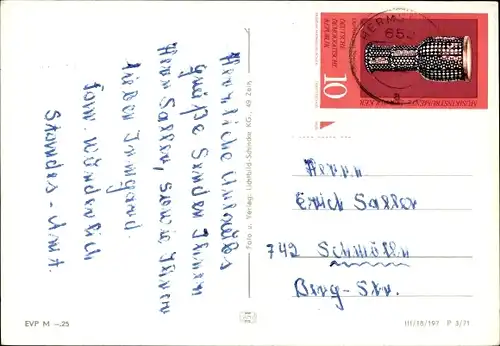 Herzliche Urlaubs
grüße senden Ihnen
Herr Saller, sowie Ihrer
lieben Irmgard.
Fam. Wunderlich
Standes-Amt.
Foto u. Verlag: Lichtbild-Schincke KG., 49 Zeitz
DEUTSCHE
DEMOKRATISCHE
REPUBLIK
10
MUSIKINSTRUMENTE
653
a
Herrn
Erich Saller
742 Schmölln
Berg-Str.
EVP M -.25
III/18/197 P 3/71